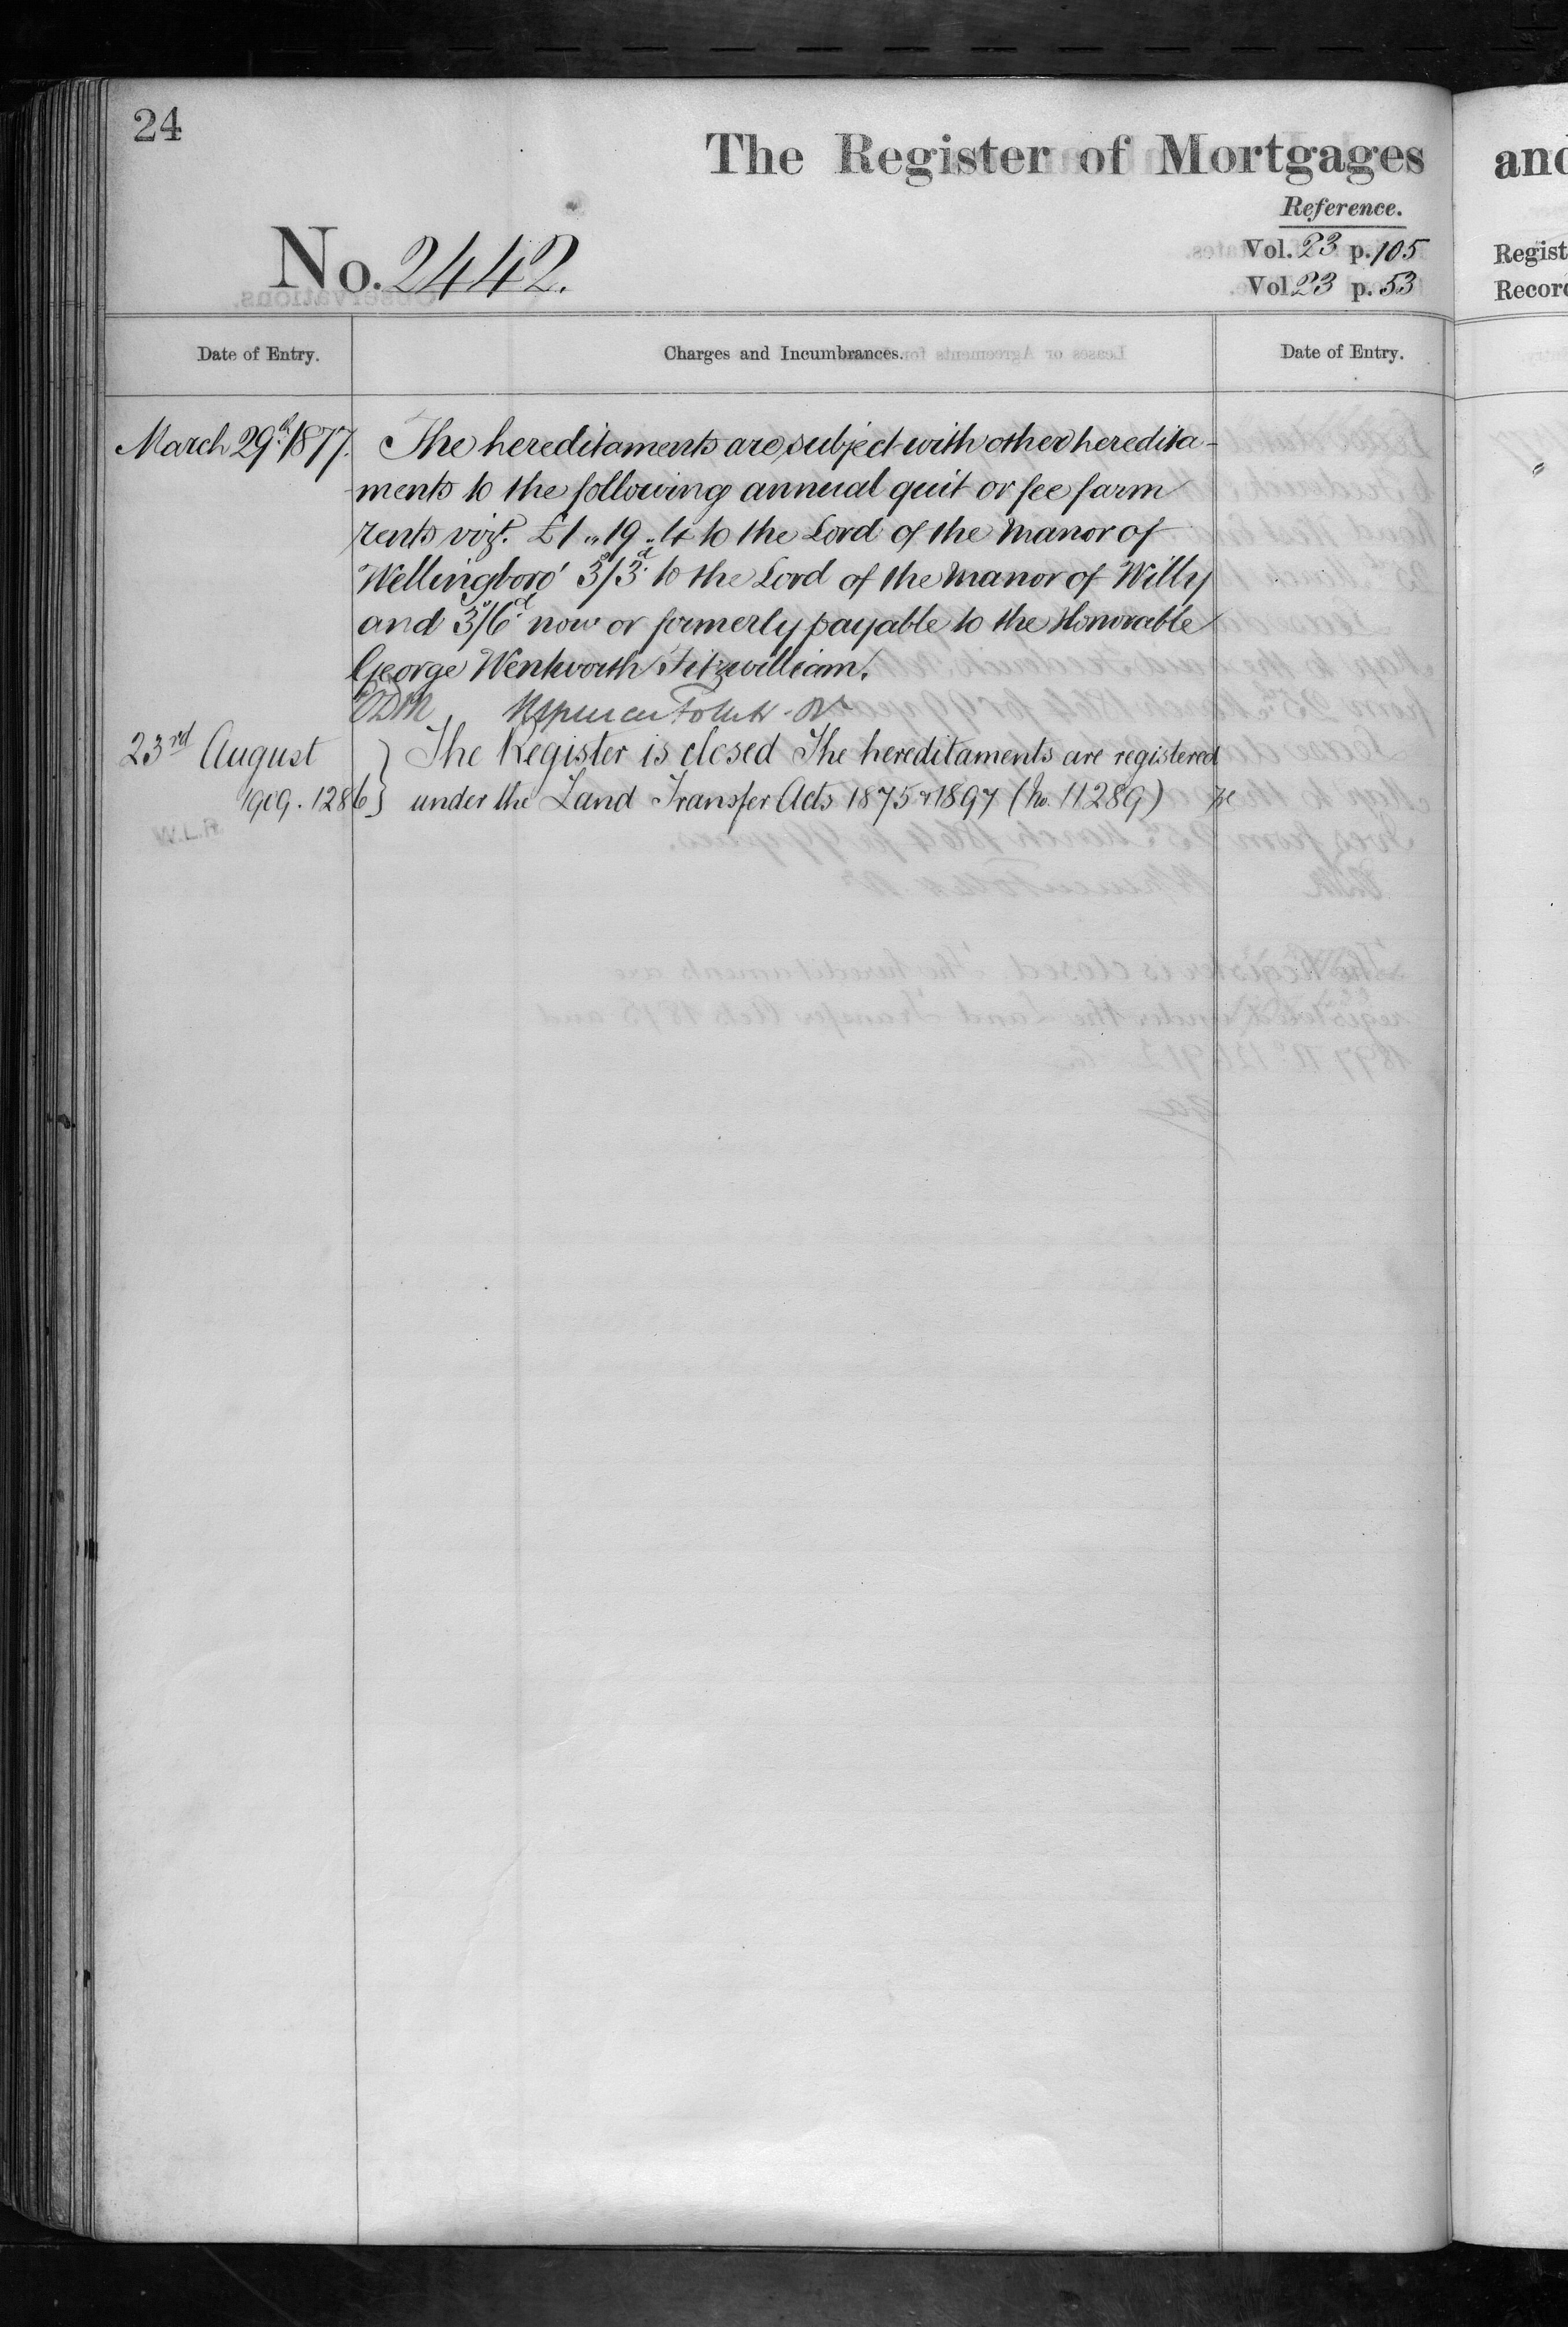 24
The Register of Mortgages
Reference.
No. 2442.
Vol. 23 p. 105
Vol 23 p. 53
and
Regist
Record
Date of Entry.
Charges and Incumbrances.
Date of Entry.
March 29th 1877. The hereditaments are subject with other heredita-
ments to the following annual quit or fee farm
rents vizt. £1 „ 19 „ 4 to the Lord of the Manor of
Wellingboro' 3s/3d to the Lord of the Manor of Willy
and 3s/6d now or formerly payable to the Honorable
George Wentworth Fitzwilliam.
23rd August } The Register is closed The hereditaments are registered
1909. 1286 } under the Land Transfer Acts 1875 & 1897 (No. 11289)
W.L.R